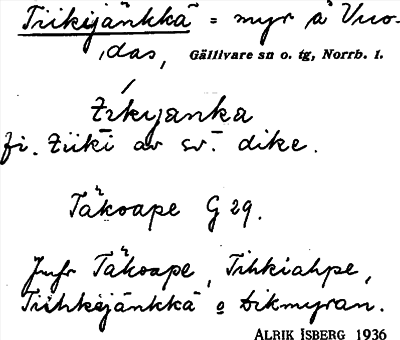 Tiikijänkkä = myr å Vuo-
das, Gällivare sn o. tg, Norrb. l.
tikijanka
fi. tiiki av sv. dike.
Täkoape G 29.
Jmfr Täkoape, Tihkiahpe,
Tiihkejänkkä o Dikmyran.
ALRIK ISBERG 1936